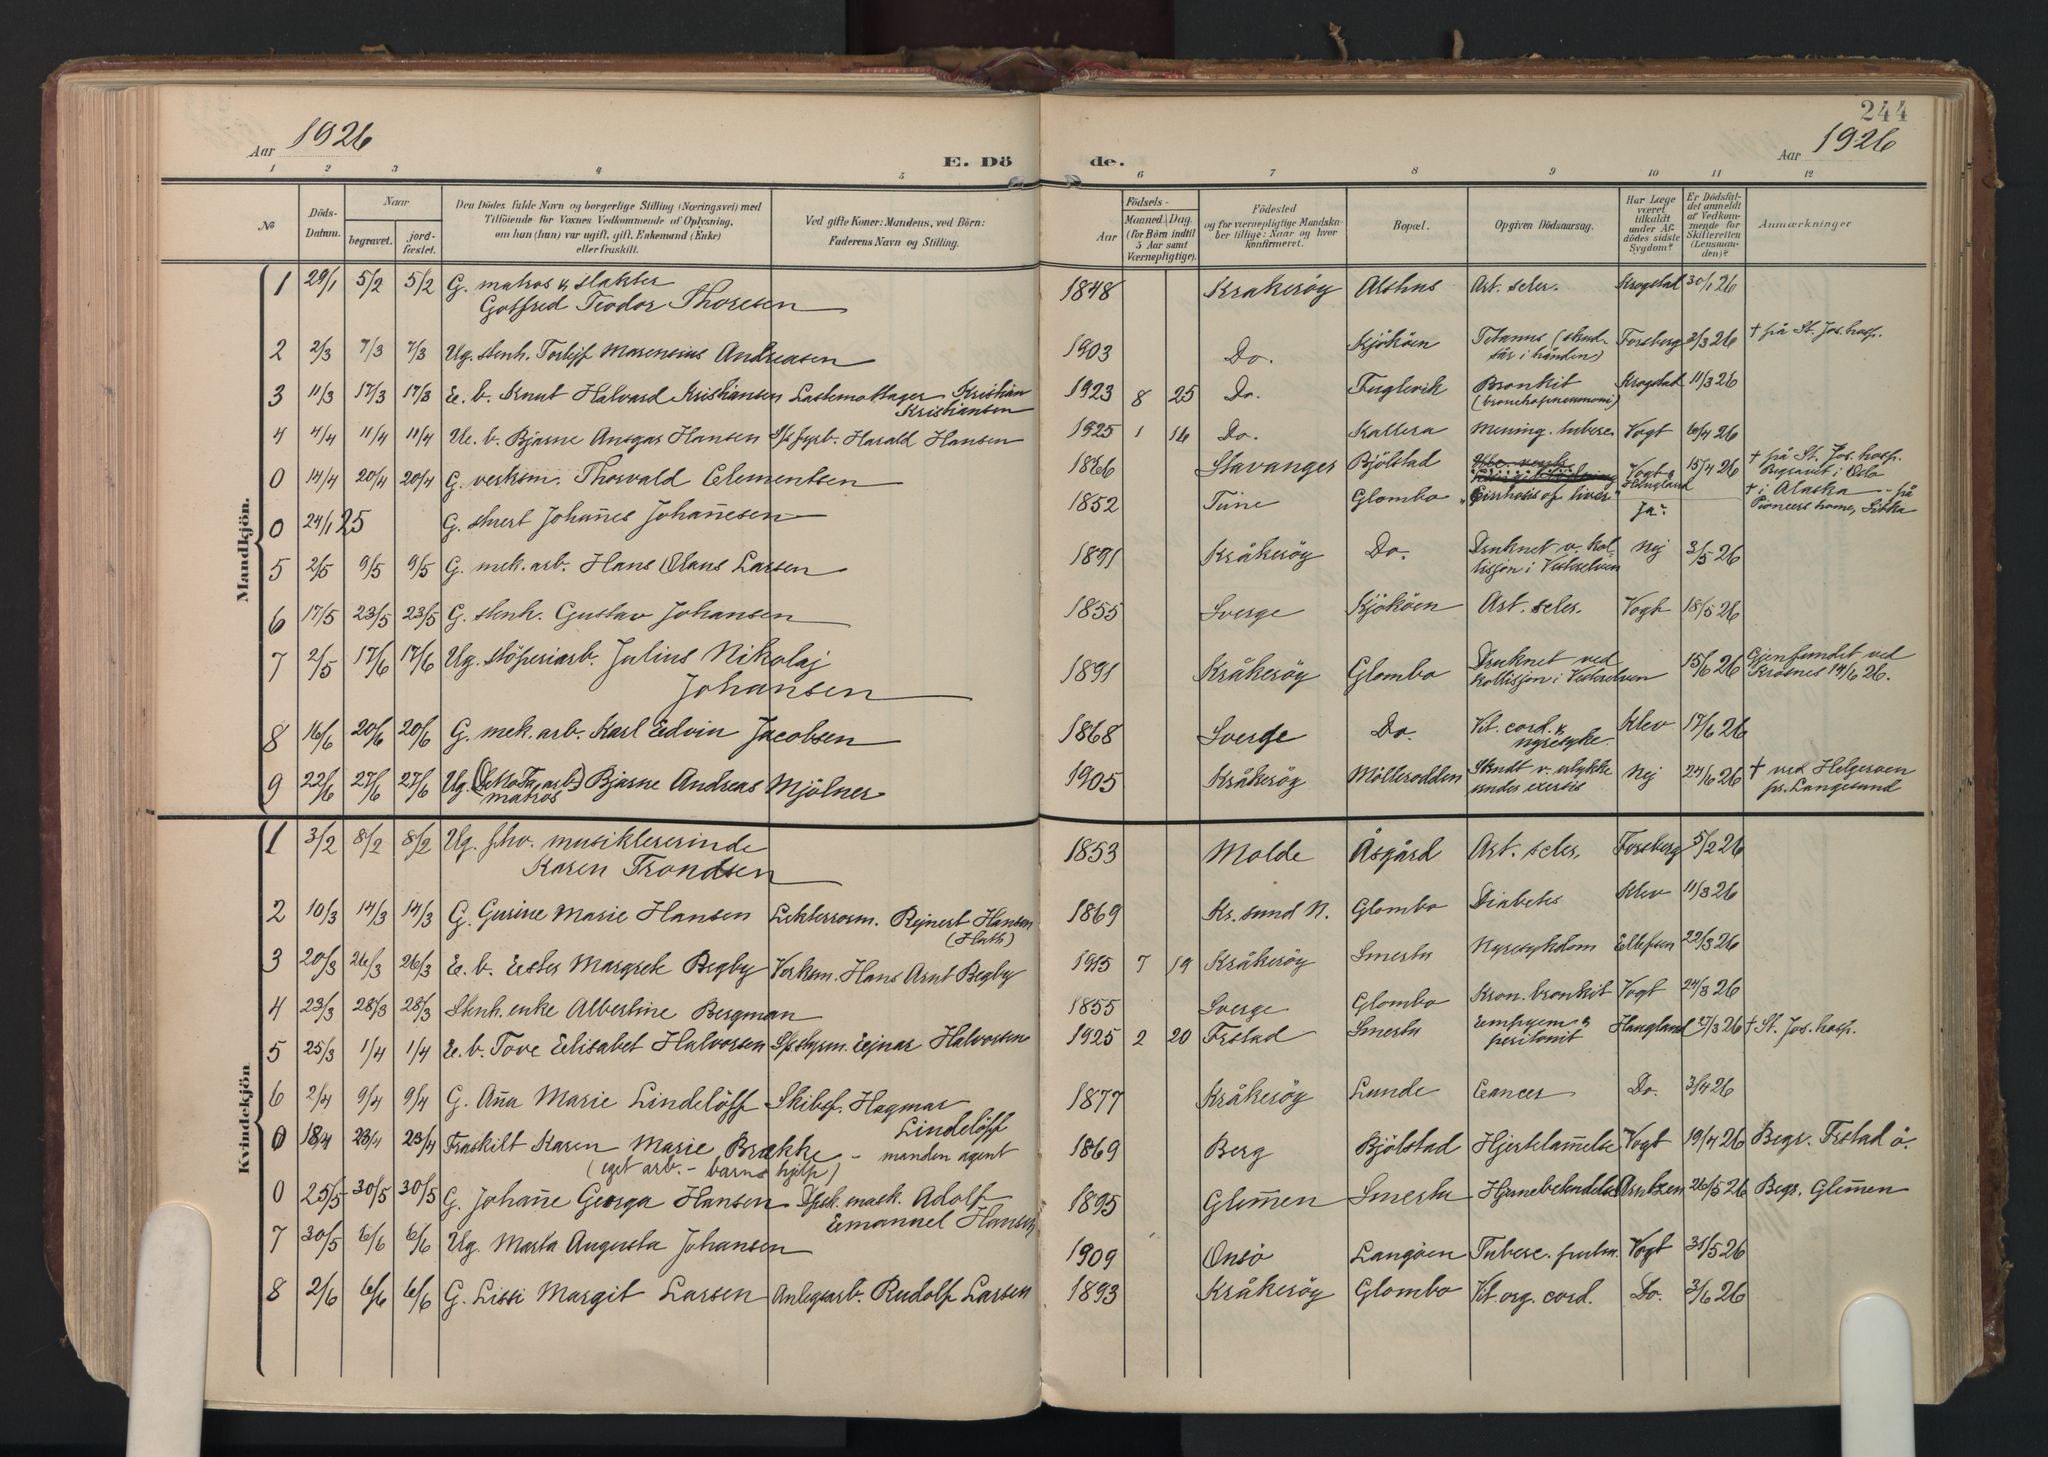 244
Aar 1926
E. Dö de.
Aar 1926
1 2 3 4 5 6 7 8 9 10 11 12
№
Döds-Datum.
Naar
begravet.
jord-festet.
Den Dödes fulde Navn og borgerlige Stilling (Næringsvei) med
Tilföiende for Voxnes Vedkommende af Oplysning,
om han (hun) var ugift, gift, Enkemand (Enke)
eller fraskilt.
Ved gifte Koner: Mandens, ved Börn:
Faderens Navn og Stilling.
Födsels-
Aar
Maaned. Dag.
(for Börn indtil
5 Aar samt
Værnepligtige).
Födested
og for værnepligtige Mandska-
ber tillige: Naar og hvor
konfirmeret.
Bopæl.
Opgiven Dödsaarsag.
Har Læge
været
tilkaldt
under Af-
dödes sidste
Sygdom?
Er Dödsfal-
det anmeldt
af Vedkom-
mende for
Skifteretten
(Lensman-
den)?
Anmærkninger
Mandkjön.
1 29/1 5/2 5/2 G. matros & slakter
Gotfred Teodor Thoresen 1848 Krakeröy Alshus Art. scler. Krogstad 30/1 26
2 2/3 7/3 7/3 Ug. stenh. Torleif Marensius Andreasen 1903 Do. Kjököen Tetanus (skud-
sår i hånden) Forsberg 3/3 26 † på St. Jos. hosp.
3 11/3 17/3 17/3 E. b. Knut Halvard Kristiansen Lastemottager Kristian
Kristiansen 1923 8 25 Do. Fuglevik Bronkit
(bronchopneumoni) Krogstad 11/3 26
4 4/4 11/4 11/4 Ue. b. Bjarne Ansgar Hansen Sk. fyrb. Harald Hansen 1925 1 16 Do. Kallera Mening. tuberc. Vogt 6/4 26
0 14/4 20/4 20/4 G. verksm. Thorvald Clementsen 1866 Stavanger Bjölstad Vogt & Haugland 15/4 26 † på St. Jos. hosp.
Begravet i Oslo
0 24/1 25 G. stuert Johañes Johañesen 1852 Tune Glombo "Cirrhosis of liver" Ja. † i Alaska - på
Pioneers home, Sitka
5 2/5 9/5 9/5 G. mek. arb. Hans Claus Larsen 1891 Kråkeröy Do. Druknet v. kol-
lisjon i Vesterelven Nej 3/5 26
6 17/5 23/5 23/5 G. stenh. Gustav Johansen 1855 Sverge Kjököen Art. scler. Vogt 18/5 26
7 2/5 17/6 17/6 Ug. stöperiarb. Julius Nikolaj
Johansen 1891 Kråkeröy Glombo Druknet ved
kollisjon i Vesterelven 15/6 26 Gjenfundet ved
Kråsnes 14/6 26.
8 16/6 20/6 20/6 G. mek. arb. Karl Edvin Jacobsen 1868 Sverge Do. Vit. cord. &
nyresyke. Klev 17/6 26
9 22/6 27/6 27/6 Ug. matros Bjarne Andreas Mjölner 1905 Kråkeröy Mölleroddén Skudt v. ulykke
under exersis Nej 24/6 26 † ved Helgeroen
pr. Langesund
Kvindekjön
1 3/2 8/2 8/2 Ug. fhv. musiklererinde
Karen Trondsen 1853 Molde Åsgård Art. scler. Forsberg 5/2 26
2 10/3 14/3 14/3 G. Gurine Marie Hansen Lekterrorm. Rejnert Hansen
(Huth) 1869 Kr. sund N. Glombo Diabetes Klev 11/3 26
3 20/3 26/3 26/3 E. b. Ester Margrete Begby Verksm. Hans Arnt Begby 1915 7 19 Kråkeröy Smertu Nyresykdom Ellefsen 22/3 26
4 23/3 28/3 28/3 Stenh. enke Albertine Bergman 1855 Sverge Glombo Kron. bronkit Vogt 24/3 26
5 25/3 1/4 1/4 E. b. Tove Elisabet Halvorsen Sk. styrm. Ejnar Halvorsen 1925 2 20 Frstad Smertu Empyem &
peritonit Haugland 27/3 26 † St. Jos. hosp.
6 2/4 9/4 9/4 G. Aña Marie Lindelöff Skibsf. Hagmar
Lindelöff 1877 Kråkeröy Lunde Cancer Do. 3/4 26
0 18/4 23/4 23/4 Fraskilt Karen Marie Brække - manden agent
(eget arb. - barns hjelp) 1869 Berg Bjölstad Hjertelam̄else Vogt 19/4 26 Begr. Frstad ö.
0 25/5 30/5 30/5 G. Johañe Georga Hansen mask. Adolf
Emanuel Hansen 1895 Glem̄en Smertu Hjernebetendelse Arntzen 26/5 26 Begr. Glem̄en
7 30/5 6/6 6/6 Ug. Marta Augusta Johansen 1909 Onsö Langöen Tuberc. pulm. Vogt 31/5 26
8 2/6 6/6 6/6 G. Lissi Margit Larsen Anlegsarb. Rudolf Larsen 1893 Kråkeröy Glombo Vit. org. cord. Do. 3/6 26